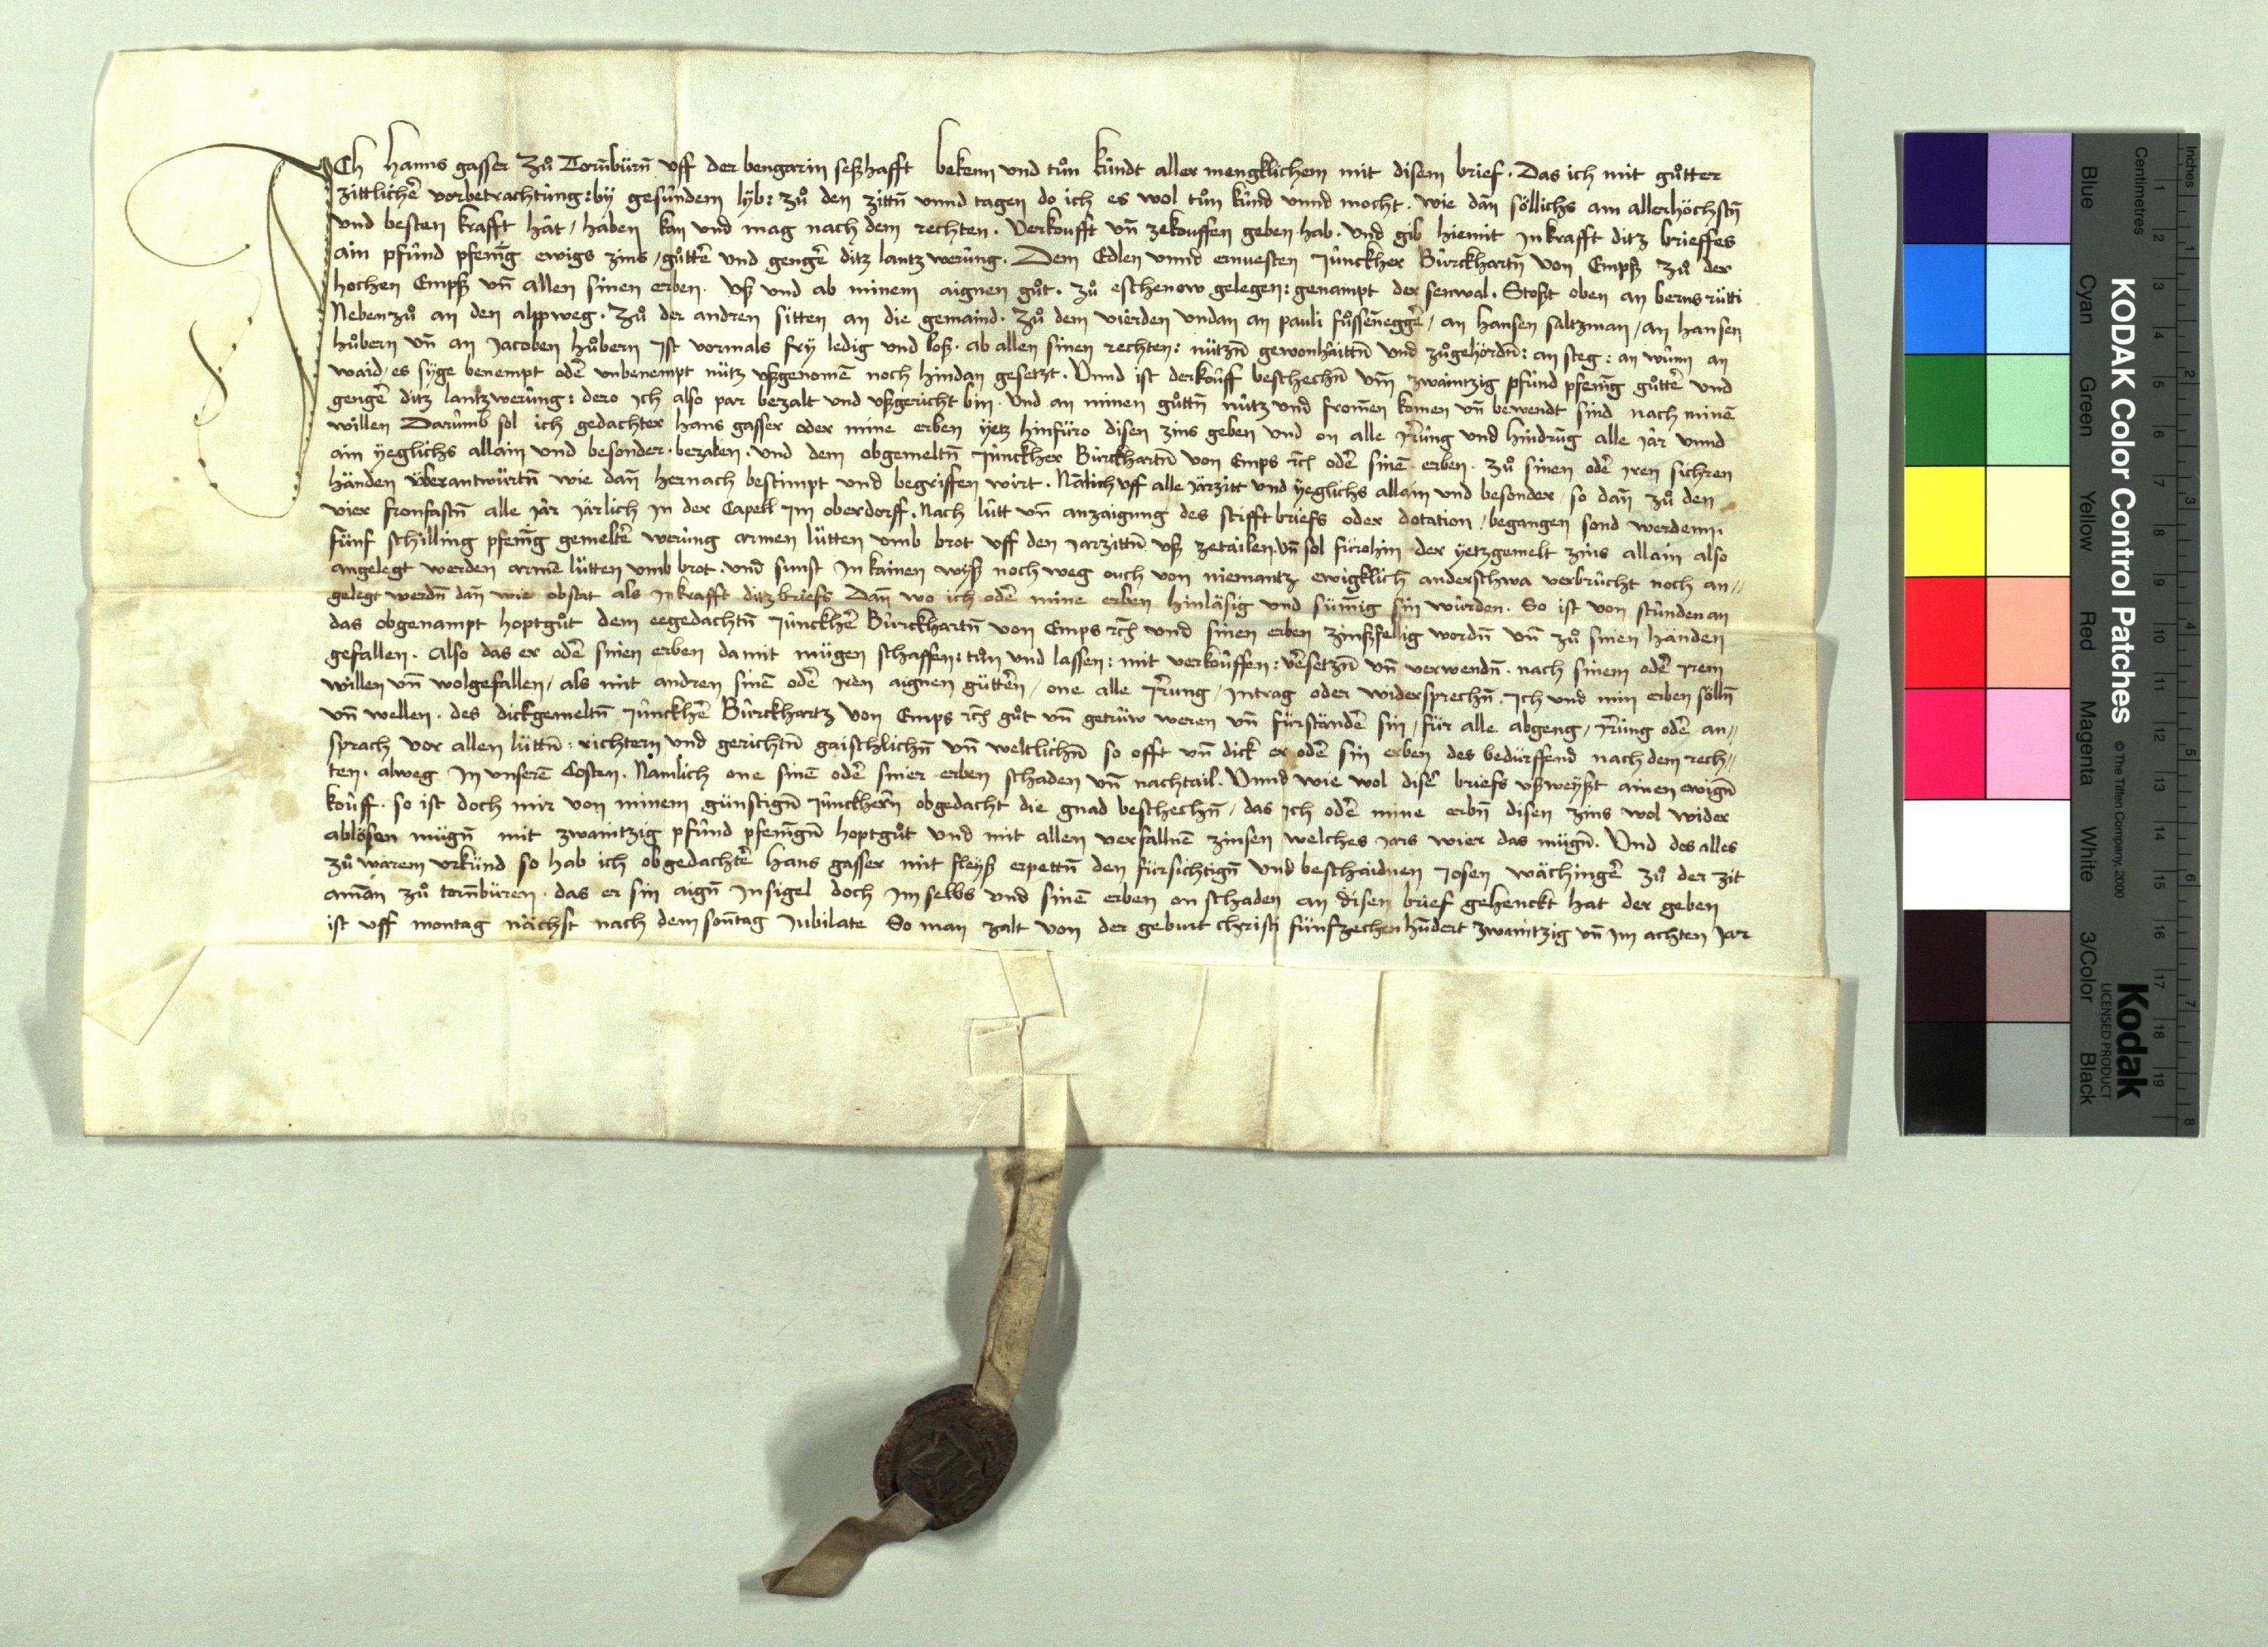 ICh hanns gasser zů Tornbürn̄ vff der bengarin seßhafft bekenn vnd tůn kündt aller mengklichem mit disem brief. Das ich mit gůtter
zittlichē vorbetrachtung: by gesundem lyb: zů den zittn̄ vnnd tagen do ich es wol tůn kund vnnd mocht. wie dan̄ söllichs am allerhöchstn̄
vnd besten krafft hăt / haben kan vnd mag nach dem rechten. Verkoufft vn̄ zekouffen geben hab. vnd gib hiemit Jnkrafft ditz brieffes
ain pfund pfenn̄g ewigs zins / gůttē vnd gengē ditz lantz werung. Dem Edlen vnnd ernuesten Junckher Burckhartn̄ von Empß zů der
hochen Empß vn̄ allen sinen erben. vß vnd ab minem aignen gůt. zů eschenow gelegen: genampt der senwal. Stoßt oben an berns rütti
Nebenzů an den alppweg. zů der andren sitten an die gemaind. zů dem vierden vndan an pauli fůssen̄eggē / an hansen saltzman / an hansen
hůbern vn̄ an Jacoben hůbern Jst vormals fry ledig vnd loß. ab allen sinen rechten: nützn̄ gewonhăittn̄ vnd zůgehördn̄: an steg: an wunn an
waid / es syge benempt odē vnbenempt nütz vßgenomē noch hindan gesetzt. Vnnd ist derkouff beschechn̄ vm̄ zwaintzig pfund pfenn̄g gůttē vnd
gengē ditz lantzwerung: dero Jch also par bezalt vnd vßgericht bin. vnd an minen gůttn̄ nutz vnd from̄en komen vn̄ bewendt sind nach minē
willen Darumb sol ich gedachter hans gasser oder mine erben yetz hinfüro disen zins geben vnd on alle Jr̄ung vnd hindrug alle Jăr vnnd
ain yeglichs allain vnd besonder. bezalen. vnd dem obgemeltn̄ Junckher Burckhartn̄ von Emps rc̄ odē sinē erben. zů sinen odē Jren sichren
händen v̈berantwürtn̄ wie dan̄ hernach bestimpt vnd begriffen wirt. Nālich vff alle Järzitt vnd yeglichs allain vnd besonder / so dan̄ zů den
vier fronfastn̄ alle Jăr Järlich Jn der Capell Jm oberdorff. Nach lutt vn̄ anzaigung des stifft briefs oder dotation / begangen sond werdenn.
fünf schilling pfenn̄g gemeltē werung armen lütten vmb brot vff den Jarzittn̄ vß zetailen. vn̄ sol fürohin der yetzgemelt zins allain also
angelegt werden armē lütten vmb brot. vnd sunst Jn kainen wyß noch weg ouch von niemantz ewigklich anderschwa verbrucht noch an//
gelegt werdn̄ dan̄ wie obstat als Jnkrafft ditz briefs Dan̄ wo ich odē mine erben hinläsig vnd süm̄ig sin wurden. So ist von stunden an
das obgenampt hoptgůt dem eegedachtn̄ Junckhē Burckhartn̄ von Emps rc̄ vnd sinen erben zinßfellig wordn̄ vn̄ zů sinen händen
gefallen. Also das er odē sinen erben damit mügen schaffen: tůn vnd lassen: mit verkouffen: vēsetzn̄ vn̄ verwendn̄. nach sinem odē Jrem
willen vn̄ wolgefallen / als mit andren sinē odē Jren aignen güttern / one alle Jr̄ung / Jntrag oder widersprechn̄. Jch vnd min erben sölln̄
vn̄ wellen. des dickgemeltn̄ Junckhē Burckhartz von Emps rc̄ gůt vn̄ getrüw weren vn̄ fürständē sin / für alle abgeng / Jr̄ung odē an//
sprach vor allen lüttn̄: richtern vnd gerichtn̄ gaischlichn̄ vn̄ weltlichn̄ so offt vn̄ dick er odē sin erben des bedürffend nach dem rech//
ten. alweg Jn vnserē Costen. Nămlich one sinē odē siner erben schaden vn̄ nachtail. Vnnd wie wol disē briefs vßweyßt ainen ewign̄
kouff. so ist doch mir von minem günstign̄ Junckhern̄ obgedacht die gnad beschechn̄ / das Jch odē mine erbn̄ disen zins wol wider
ablösen mügn̄ mit zwaintzig pfund pfenn̄gn̄ hoptgůt vnd mit allen verfallnē zinsen welches Jars wier das mügn̄. Vnd des alles
zů warem vrkund so hab ich obgedachtē hans gasser mit fleyß erpettn̄ den fürsichtign̄ vnd beschaidnen Josen wächingē zů der zit
am̄an zů torn̄büren. das er sin aign̄ Jnsigel doch Jm selbs vnd sinē erben on schaden an disen brief gehenckt hat der geben
ist vff montag nächst nach dem son̄tag Jubilate So man zalt von der geburt christi fünfzechenhundert zwaintzig vn̄ Jm achten Jar
KODAK Color Control Patches © The Tiffen Company, 2000
Kodak
LICENSED PRODUCT
Inches
1 2 3 4 5 6 7 8
Centimetres
1 2 3 4 5 6 7 8 9 10 11 12 13 14 15 16 17 18 19
Blue Cyan Green Yellow Red Magenta White 3/Color Black